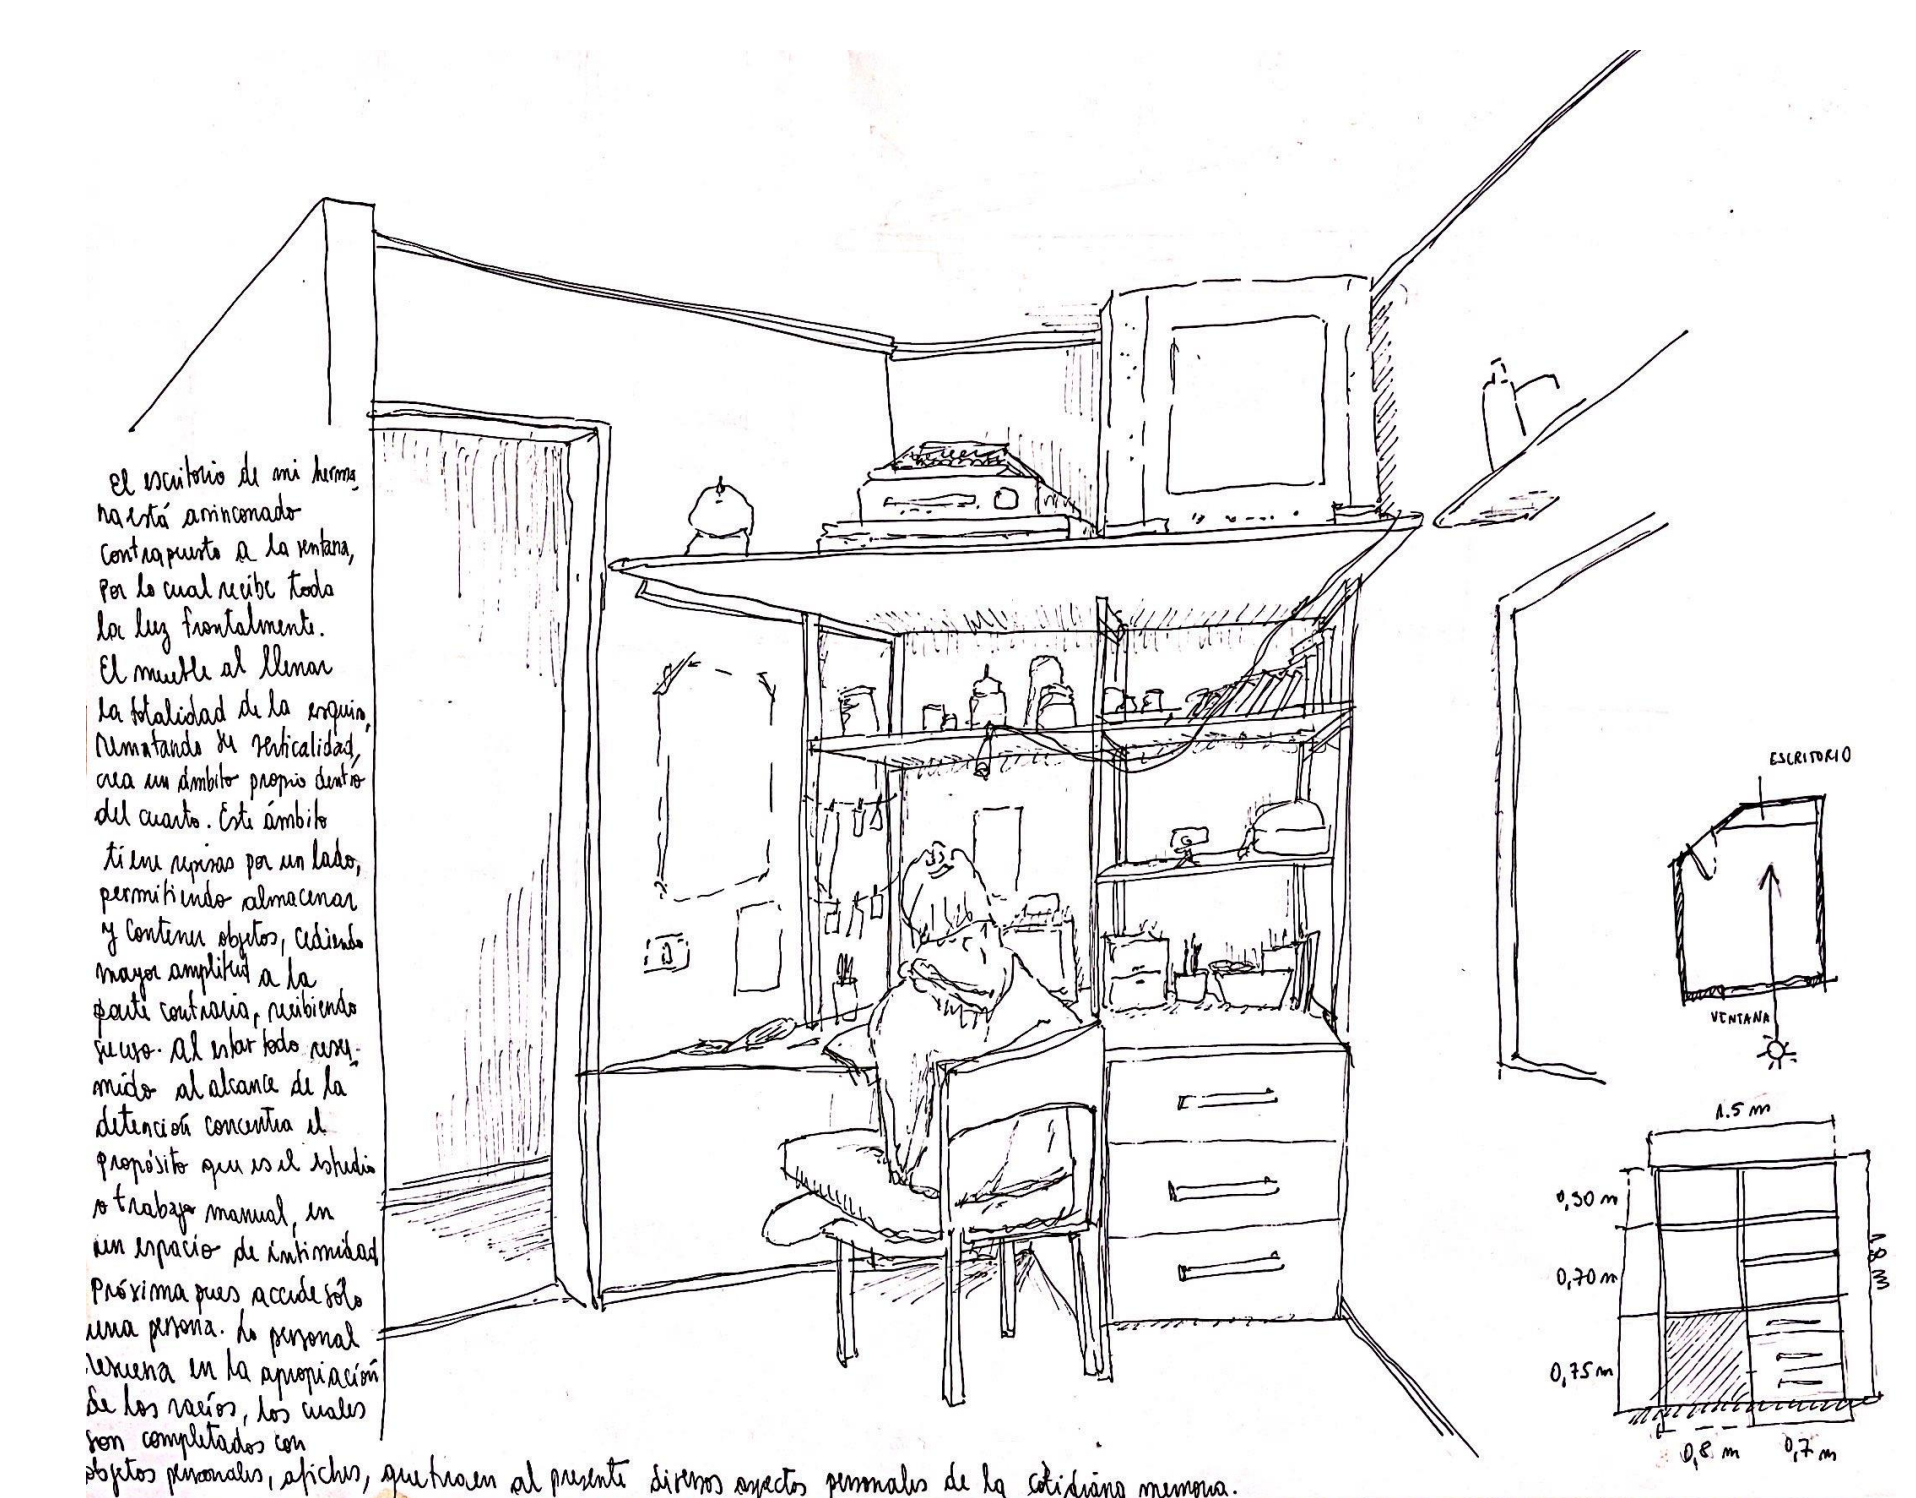 El escritorio de mi herma
na está arrinconado
contrapuesto a la ventana,
Por lo cual recibe toda
la luz frontalmente.
El mueble al llenar
la totalidad de la esquina,
rematando su verticalidad,
crea un ámbito propio dentro
del cuarto. Este ámbito
tiene repisas por un lado,
permitiendo almacenar
y contener objetos, cediendo
mayor amplitud a la
parte contraria, recibiendo
su uso. Al estar todo resu-
mido al alcance de la
detención concentra el
propósito que es el estudio
o trabajo manual, en
un espacio de intimidad
Próxima pues accede sólo
una persona. Lo personal
resuena en la apropiación
de los vacíos, los cuales
son completados con
objetos personales, afiches, que traen al presente diversos aspectos personales de la cotidiana memoria.
ESCRITORIO
VENTANA
1.5 m
0,30 m
0,70 m
0,75 m
1.8 m
0,8 m
0,7 m